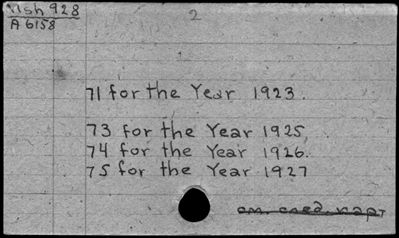 Msh 928
A 6158
2
71 for the Year 1923.
73 for the Year 1925.
74 for the Year 1926.
75 for the Year 1927